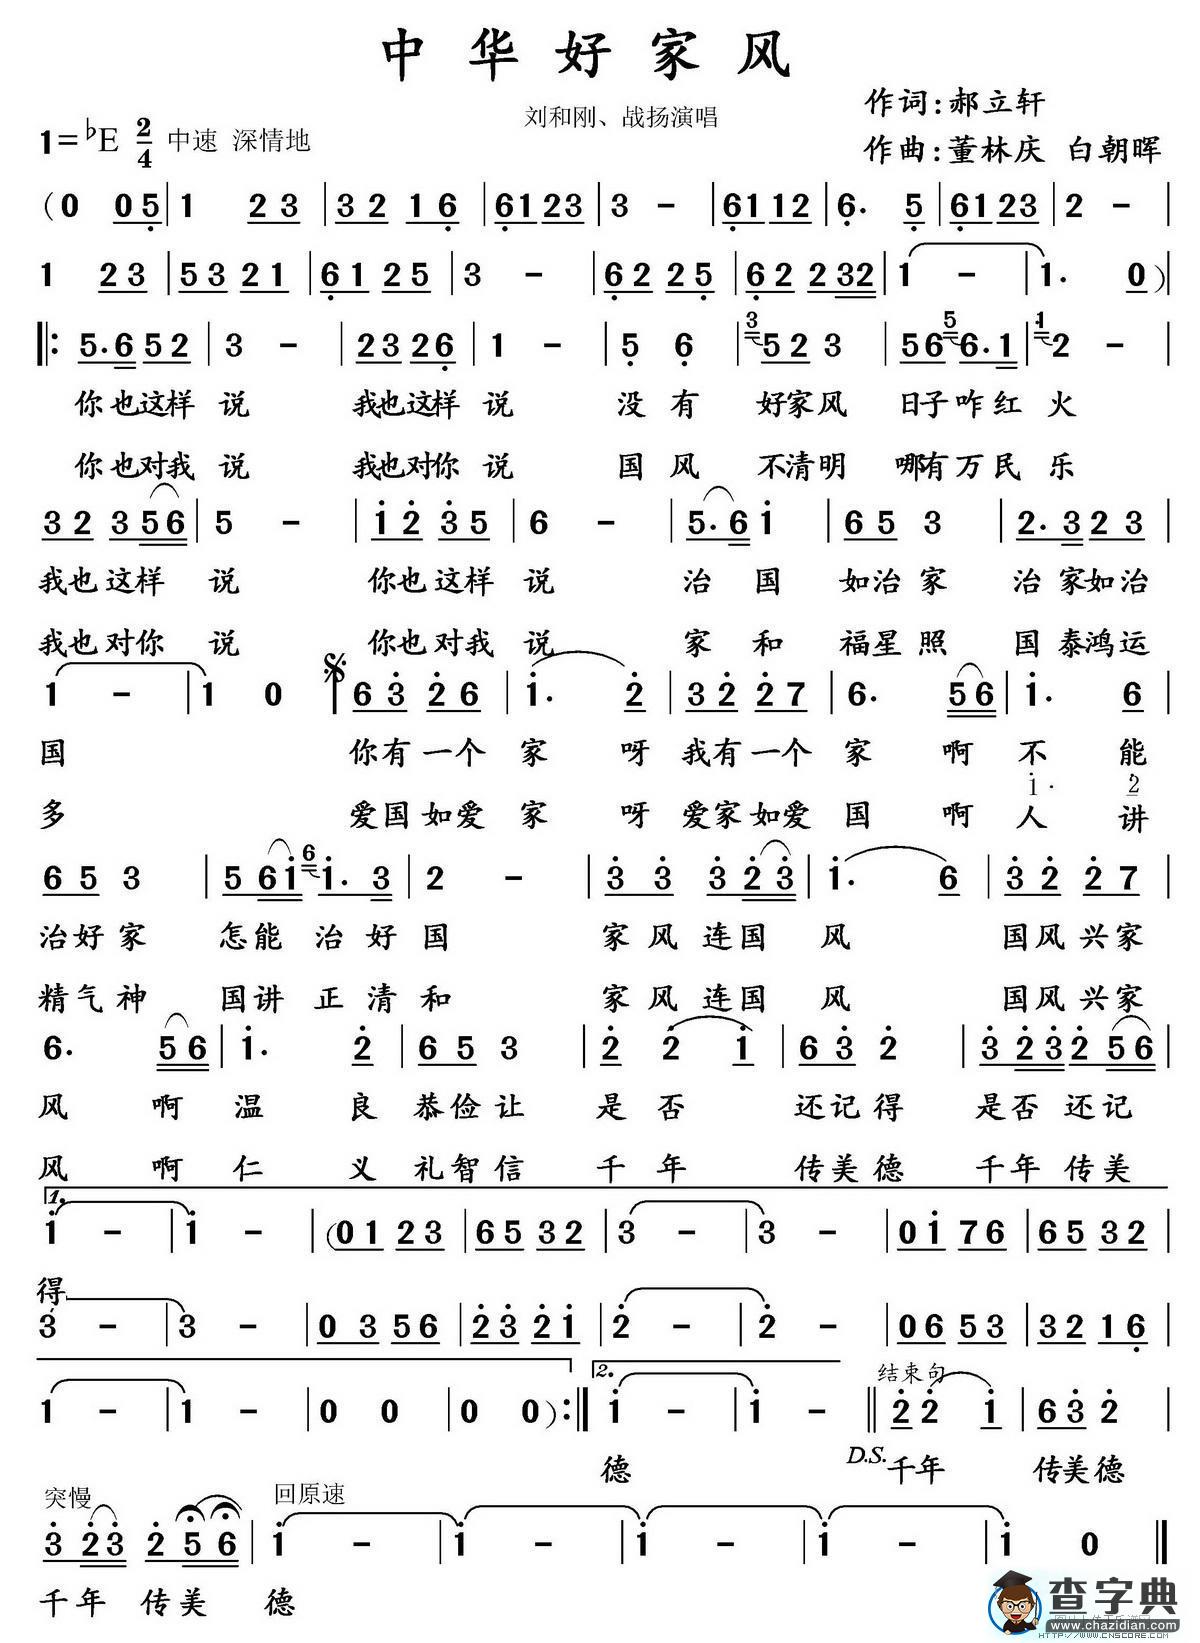 中华好家风
刘和刚、战扬演唱
作词:郝立轩
1=♭E 2/4 中速 深情地
作曲:董林庆 白朝晖
(0 05|1 23|32 16|6123|3 -|6112|6. 5|6123|2 -|
1 23|53 21|61 25|3 -|62 25|62 232|1 -|1. 0)|
‖:5.6 52|3 -|23 26|1 -|5 6|3 52 3|56 5 6.1|1 2 -|
你也这样 说 我也这样 说 没有 好家风 日子咋红 火
你也对我 说 我也对你 说 国风 不清明 哪有万民 乐
32 356|5 -|i2 35|6 -|5.6 i|65 3|2.3 23|
我也这样 说 你也这样 说 治 国 如治家 治家如治
我也对你 说 你也对我 说 家 和 福星照 国泰鸿运
1 -|1 0|63 26|i. 2|32 27|6. 56|i. 6|
国 你有一个 家 呀 我有一个 家 啊 不 能
i. 2
多 爱国如爱 家 呀 爱家如爱 国 啊 人 讲
65 3|56i 6 i.3|2 -|3 3 323|i. 6|32 27|
治好家 怎能 治好国 家风连国 风 国风兴家
精气神 国讲 正清和 家风连国 风 国风兴家
6. 56|i. 2|65 3|2 2 i|63 2|323 256|
风 啊 温 良 恭俭让 是 否 还记得 是否还记
风 啊 仁 义 礼智信 千 年 传美德 千年传美
1.
i -|i -|(01 23|65 32|3 -|3 -|0i 76|65 32|
得
3 -|3 -|03 56|23 2i|2 -|2 -|06 53|32 16|
2. 结束句
1 -|1 -|0 0|0 0):‖i -|i -‖2 2 i|63 2|
德 D.S. 千年 传美德
突慢 回原速
3 23 2 56|i -|i -|i -|i 0‖
千年 传美 德
查字典
www.chazidian.com
HTTP://WWW.CNSCORE.COM